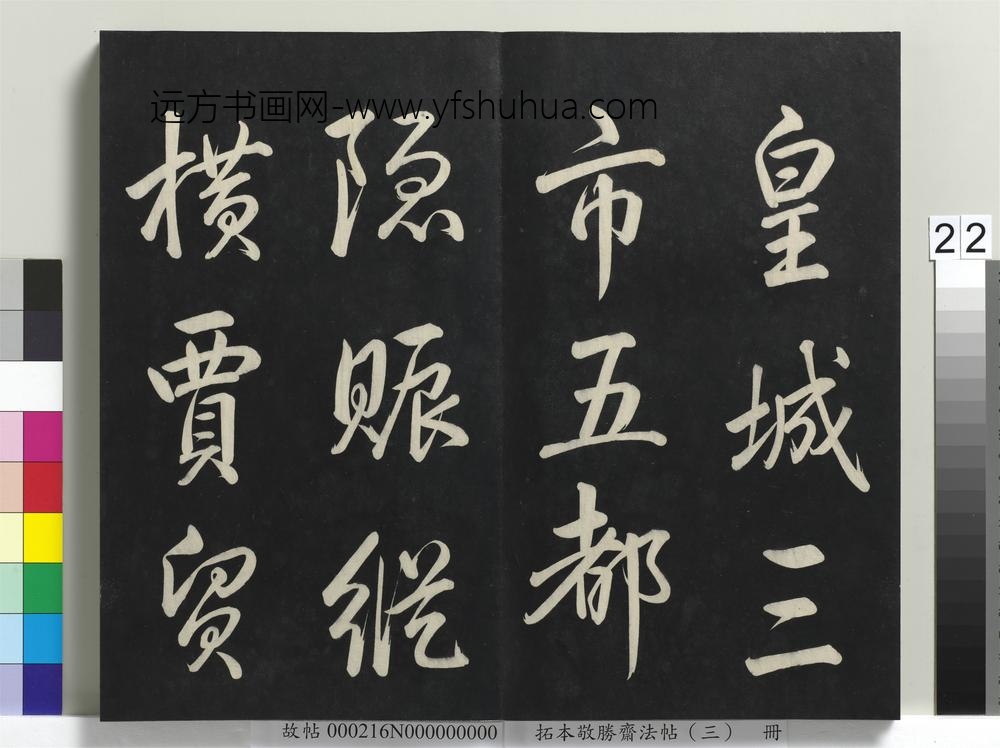 远方书画网-www.yfshuhua.com
皇城三
市五都
隐赈縱
横賈貿
22
故帖 000216N000000000
拓本敬勝齋法帖（三） 冊